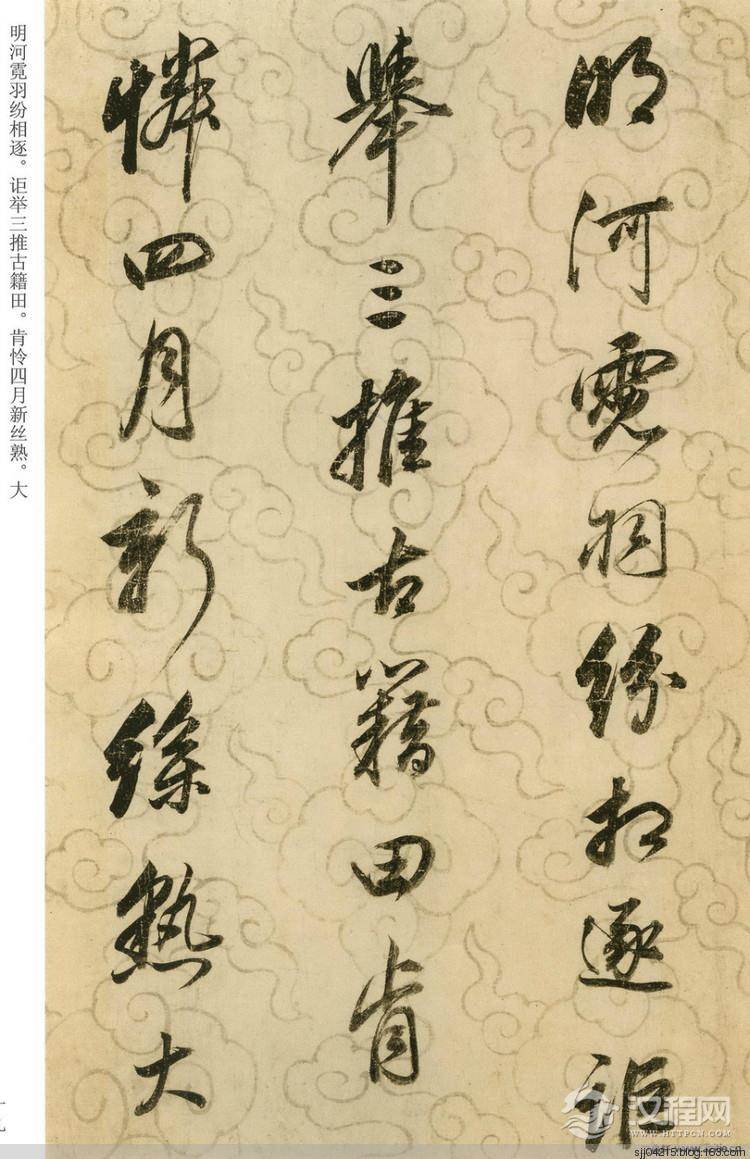 明河霓羽紛相逐詎
舉三推古籍田肯
憐四月新絲熟大
明河霓羽纷相逐。讵举三推古籍田。肯怜四月新丝熟。大
汉程网
WWW.HTTPCN.COM
sjj04215.blog.163.com